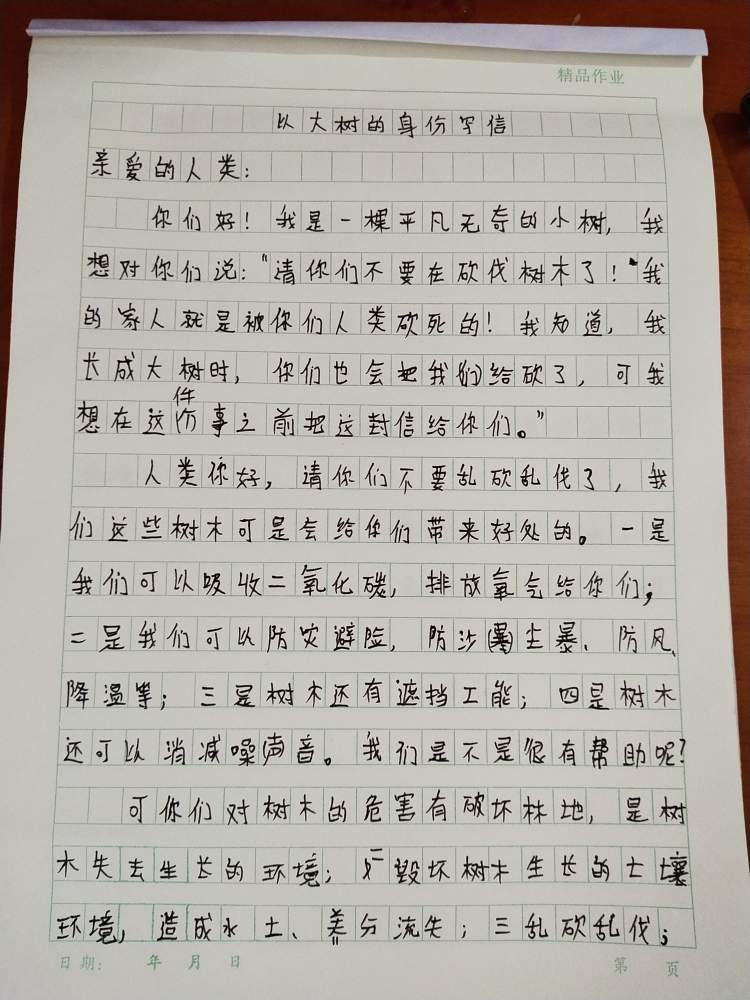 精品作业
以大树的身份写信
亲爱的人类:
你们好!我是一棵平凡无奇的小树,我
想对你们说:"请你们不要在砍伐树木了!"我
的家人就是被你们人类砍死的!我知道,我
长成大树时,你们也会把我们给砍了,可我
想在这件事之前把这封信给你们。"
人类你好,请你们不要乱砍乱伐了,我
们这些树木可是会给你们带来好处的。一是
我们可以吸收二氧化碳,排放氧气给你们;
二是我们可以防灾避险,防沙尘暴、防风、
降温等;三是树木还有遮挡工能;四是树木
还可以消减噪声音。我们是不是很有帮助呢?
可你们对树木的危害有破坏林地,是树
木失去生长的环境;二毁坏树木生长的土壤
环境,造成水土、养分流失;三乱砍乱伐;
日期: 年 月 日 第 页